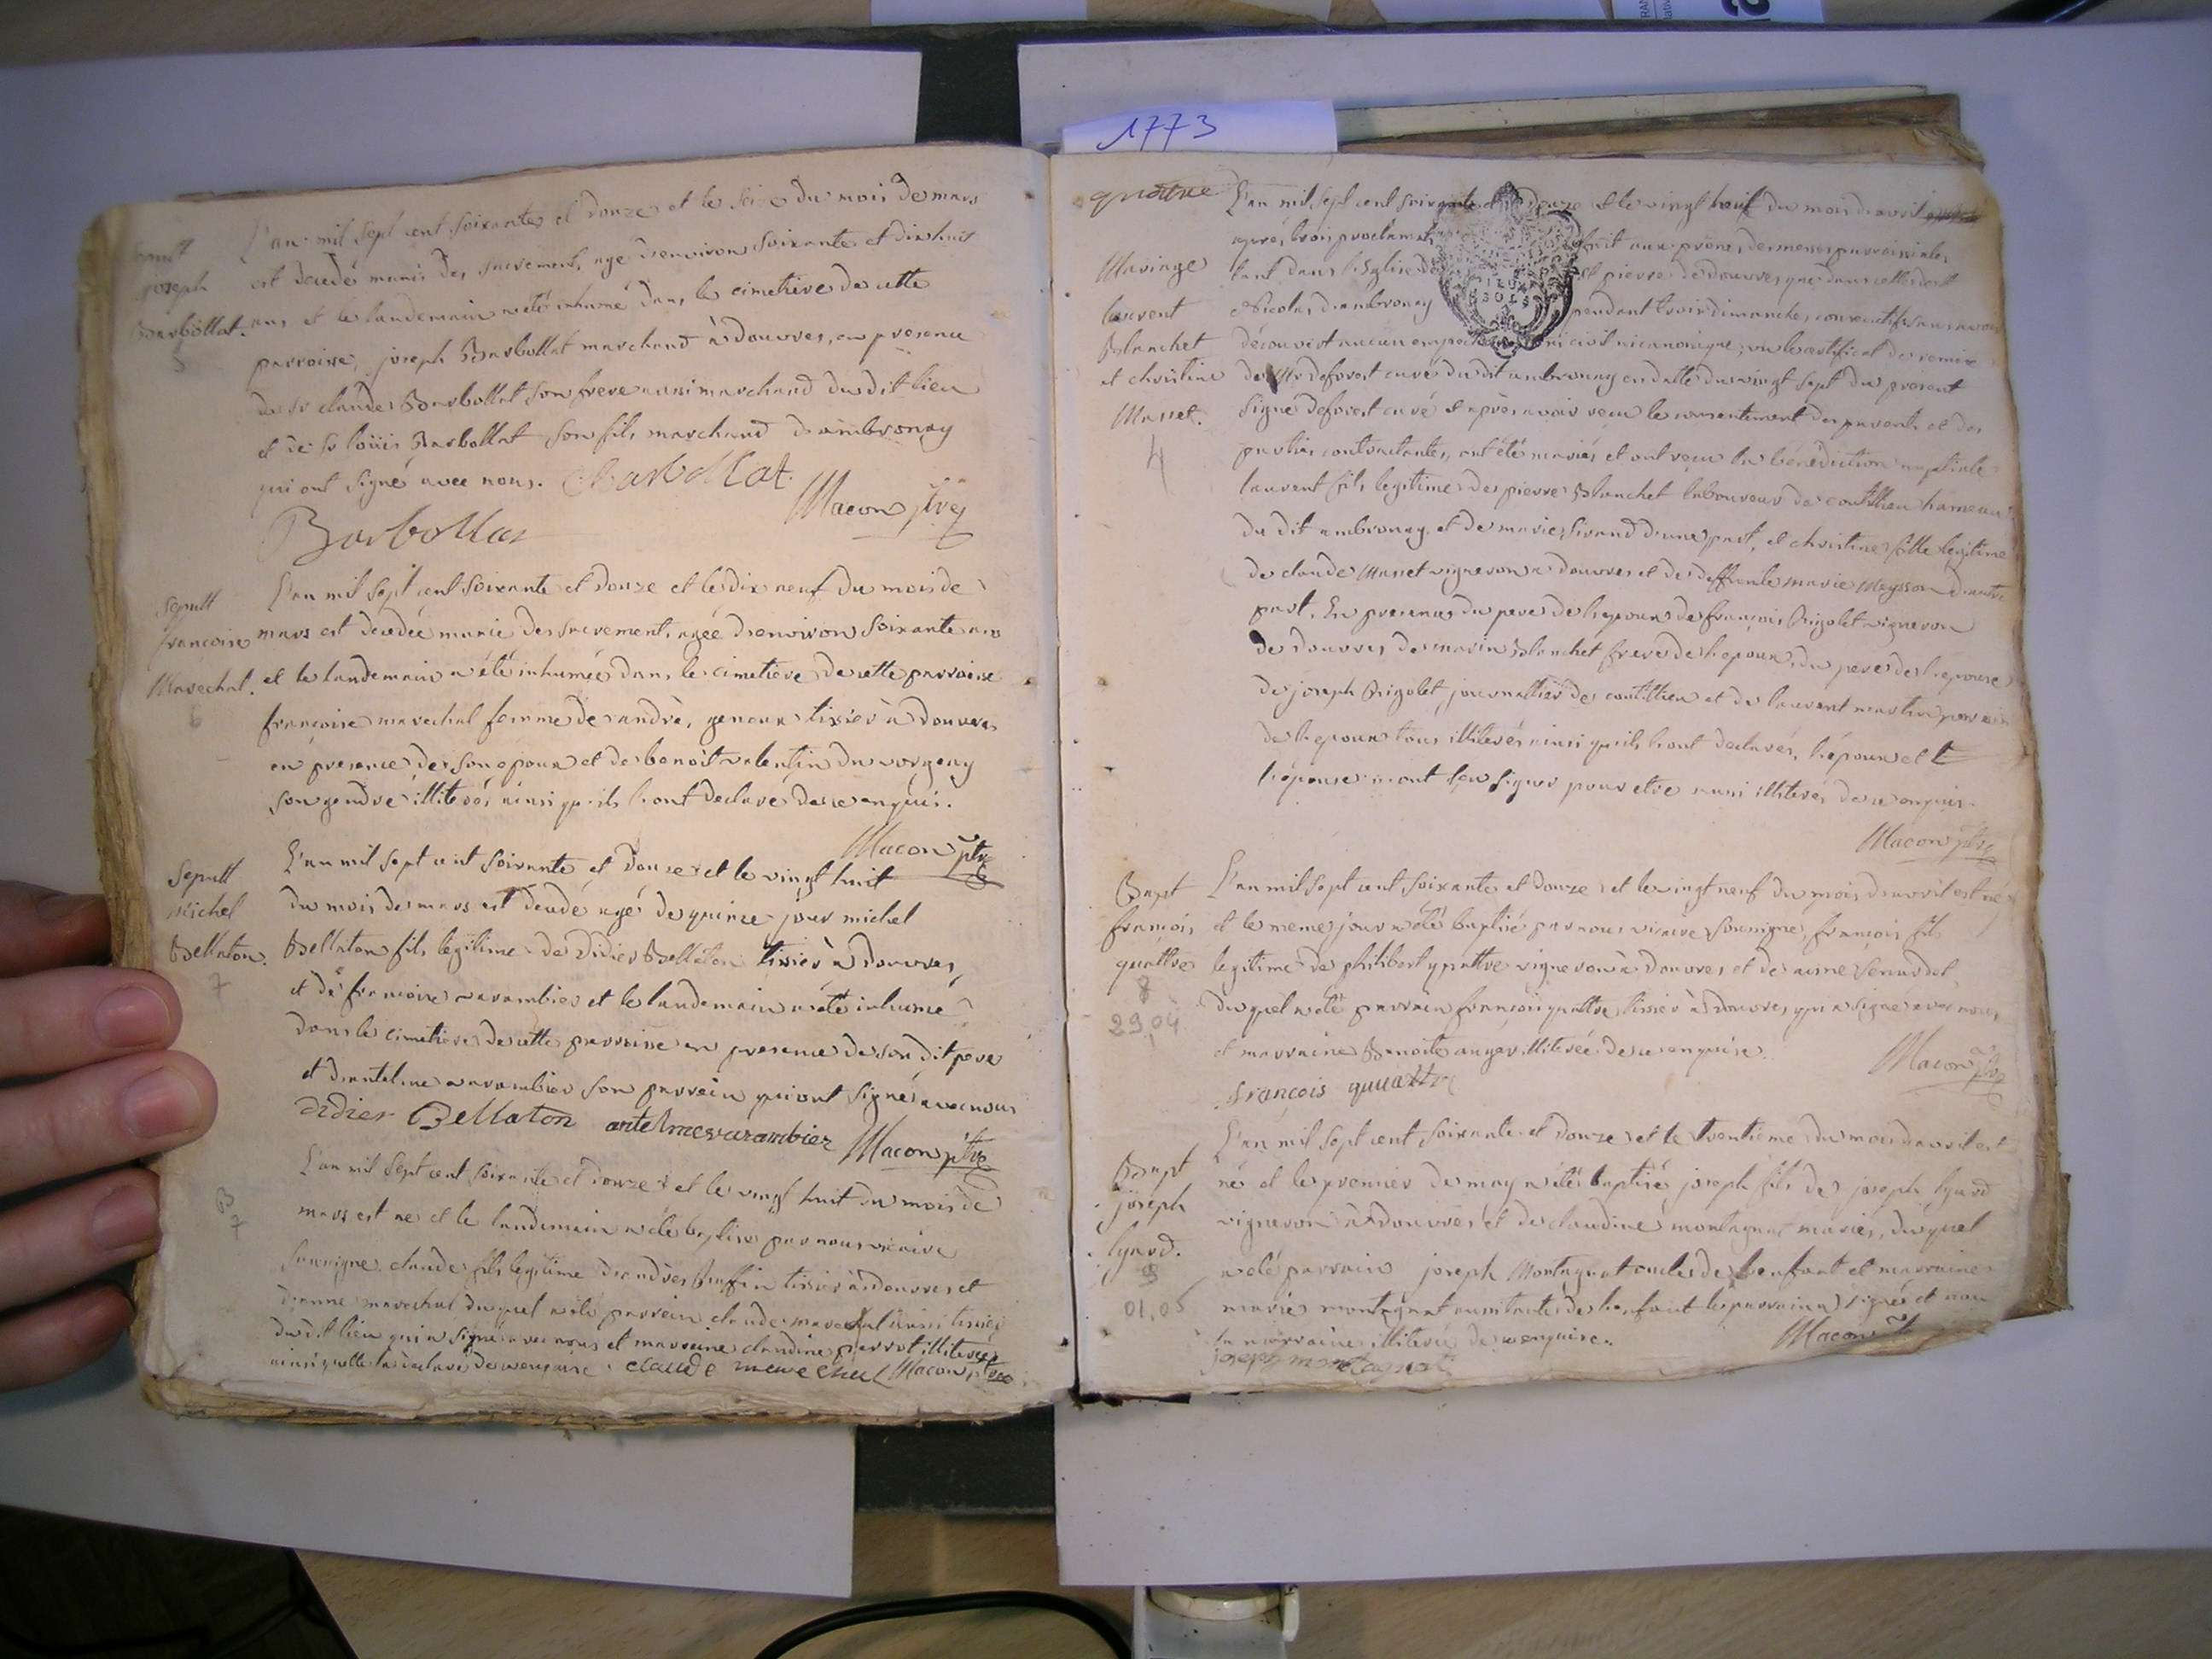 1773
Sepult
joseph
Barbollat.
5
L'an mil sept cent soixante et douze et le seize du mois de mars
est decedé munis des sacrements agé d'environ soixante et dix huit
ans et le landemain a eté inhumé dans le cimetiere de cette
parroisse, joseph Barbollat marchand à douvres, en presence
de sr claude Barbollat son frere aussi marchand du dit lieu
et de sr loüis Barbollat son fils marchand d'ambronay
qui ont signé avec nous. Cbarbollat.
Macon ptre
Barbollat
Sepult
françoise
Marechal.
6
L'an mil sept cent soixante et douze et le dix neuf du mois de
mars est decedée munie des sacrements, agée d'environ soixante ans
et le landemain a été inhumée dans le cimetiere de cette parroisse
françoise marechal femme de andré, genoux tissier à douvres
en presence de son epoux et de benoît valentin du
son gendre illiterés ainsi qu'ils l'ont declaré de ce enquis.
Macon ptre
Sepult
michel
Bellaton.
7
L'an mil sept cent soixante et douze et le vingt huit
du mois de mars est decedé agé de quinze jour michel
Bellaton fils legitime de didier Bellaton tissier à douvres,
et de françoise varambier et le landemain a eté inhumé
dans le cimetiere de cette parroisse en presence de son dit pere
et d'antelme varambier son parrein qui ont signé avec nous
didier Bellaton antelmevarambier Macon ptre
B
7
L'an mil sept cent soixante et douze et le vingt huit du mois de
mars est né et le landemain a eté baptisé par nous vicaire
soussigné, claude fils legitime d'andré Ruffin tissier à douvres et
d'anne marechal du quel a eté parrein claude marechal aussi tissier
du dit lieu qui a signé avec nous et marreine claudine parrot illiterée
ainsi qu'elle l'a declaré de ce enquise. claude marechal Macon ptre
quatre
Mariage
laurent
Blanchet
et christine
Masset.
4
L'an mil sept cent soixante et douze et le vingt huit du mois d'avril
après trois proclamations fait aux prônes des messes parroissiales
tant dans l'Eglise de st pierre de douvres que dans celle de st
Nicolas d'ambronay pendant trois dimanches consecutifs sans avoir
découvert aucun empechement ni civil ni canonique; vu le certificat de remise
de Mr deforest curé du dit ambronay en datte du vingt sept du present
signé deforest curé et après avoir reçu le consentement des parents et des
parties contractantes, ont été mariés et ont reçu la bénédiction nuptiale
laurent fils legitime de pierre Blanchet laboureur de coutillieu hameau
du dit ambronay et de marie sirand d'une part, et christine fille legitime
de claude Masset vigneron a douvres et de deffunte marie Meysson d'autre
part. En presence du pere de l'epoux de françois Rigolet vigneron
de douvres de marin Blanchet frere de l'epoux, du pere de l'epouse
de joseph Rigolet, journallier de coutillieu et de laurent martin parrain
de l'epoux tous illiterés ainsi qu'ils l'ont declarés, l'époux et
l'épouse n'ont sçu signer pour etre aussi illiterés de ce enquis.
Macon ptre
Bapt
françois
quattre
8
29,04
L'an mil sept cent soixante et douze et le vingt neuf du mois d'avril est né
et le meme jour a été baptisé par nous vicaire soussigné, françois fils
legitime de philibert quattre vigneron à douvres et de aime
du quel a eté parrein françois quattre tissier à douvres, qui a signé avec nous,
et marraine Benoite auger illiterée de ce enquise.
Macon ptre
françois quuattre
Bapt
joseph
lyard.
9
01,05
L'an mil sept cent soixante et douze et le trentieme du mois d'avril est
né et le premier de may a été baptisé joseph fils de joseph lyard
vigneron à douvres et de claudine montagnat mariés, du quel
a eté parrain joseph Montagnat oncle de l'enfant et marraine
marie montagnat aussi tante de l'enfant le parrain a signé et non
la marraine illiterée de ce enquise.
Macon ptre
joseph montagnat